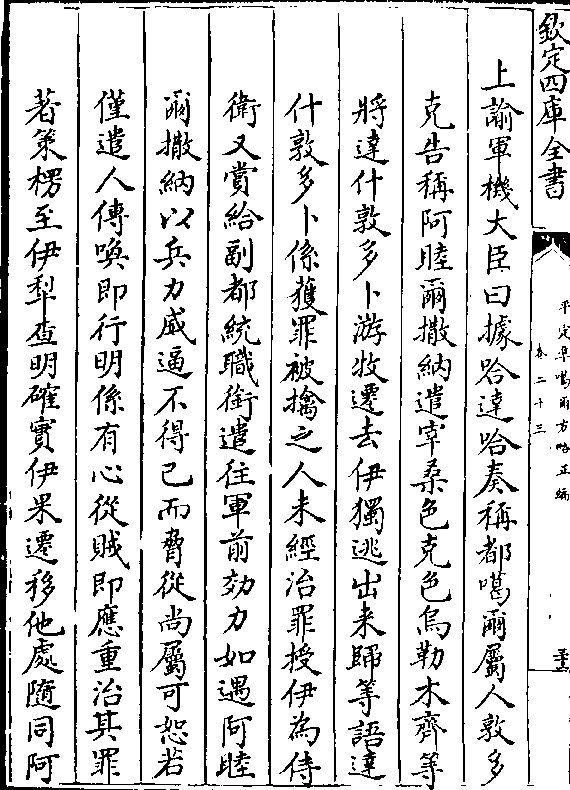 欽定四庫全書
平定準噶爾方略正編
卷二十三
上諭軍機大臣曰據哈達哈奏稱都噶爾屬人敦多
克告稱阿睦爾撒納遣宰桑色克色烏勒木齊等
將達什敦多卜游牧遷去伊獨逃出来歸等語達
什敦多卜係獲罪被擒之人未經治罪授伊為侍
衛又賞給副都統職銜遣往軍前効力如遇阿睦
爾撒納以兵力威逼不得已而脅從尚屬可恕若
僅遣人傳喚即行明係有心從賊即應重治其罪
著策楞至伊犁查明確實伊果遷移他處隨同阿